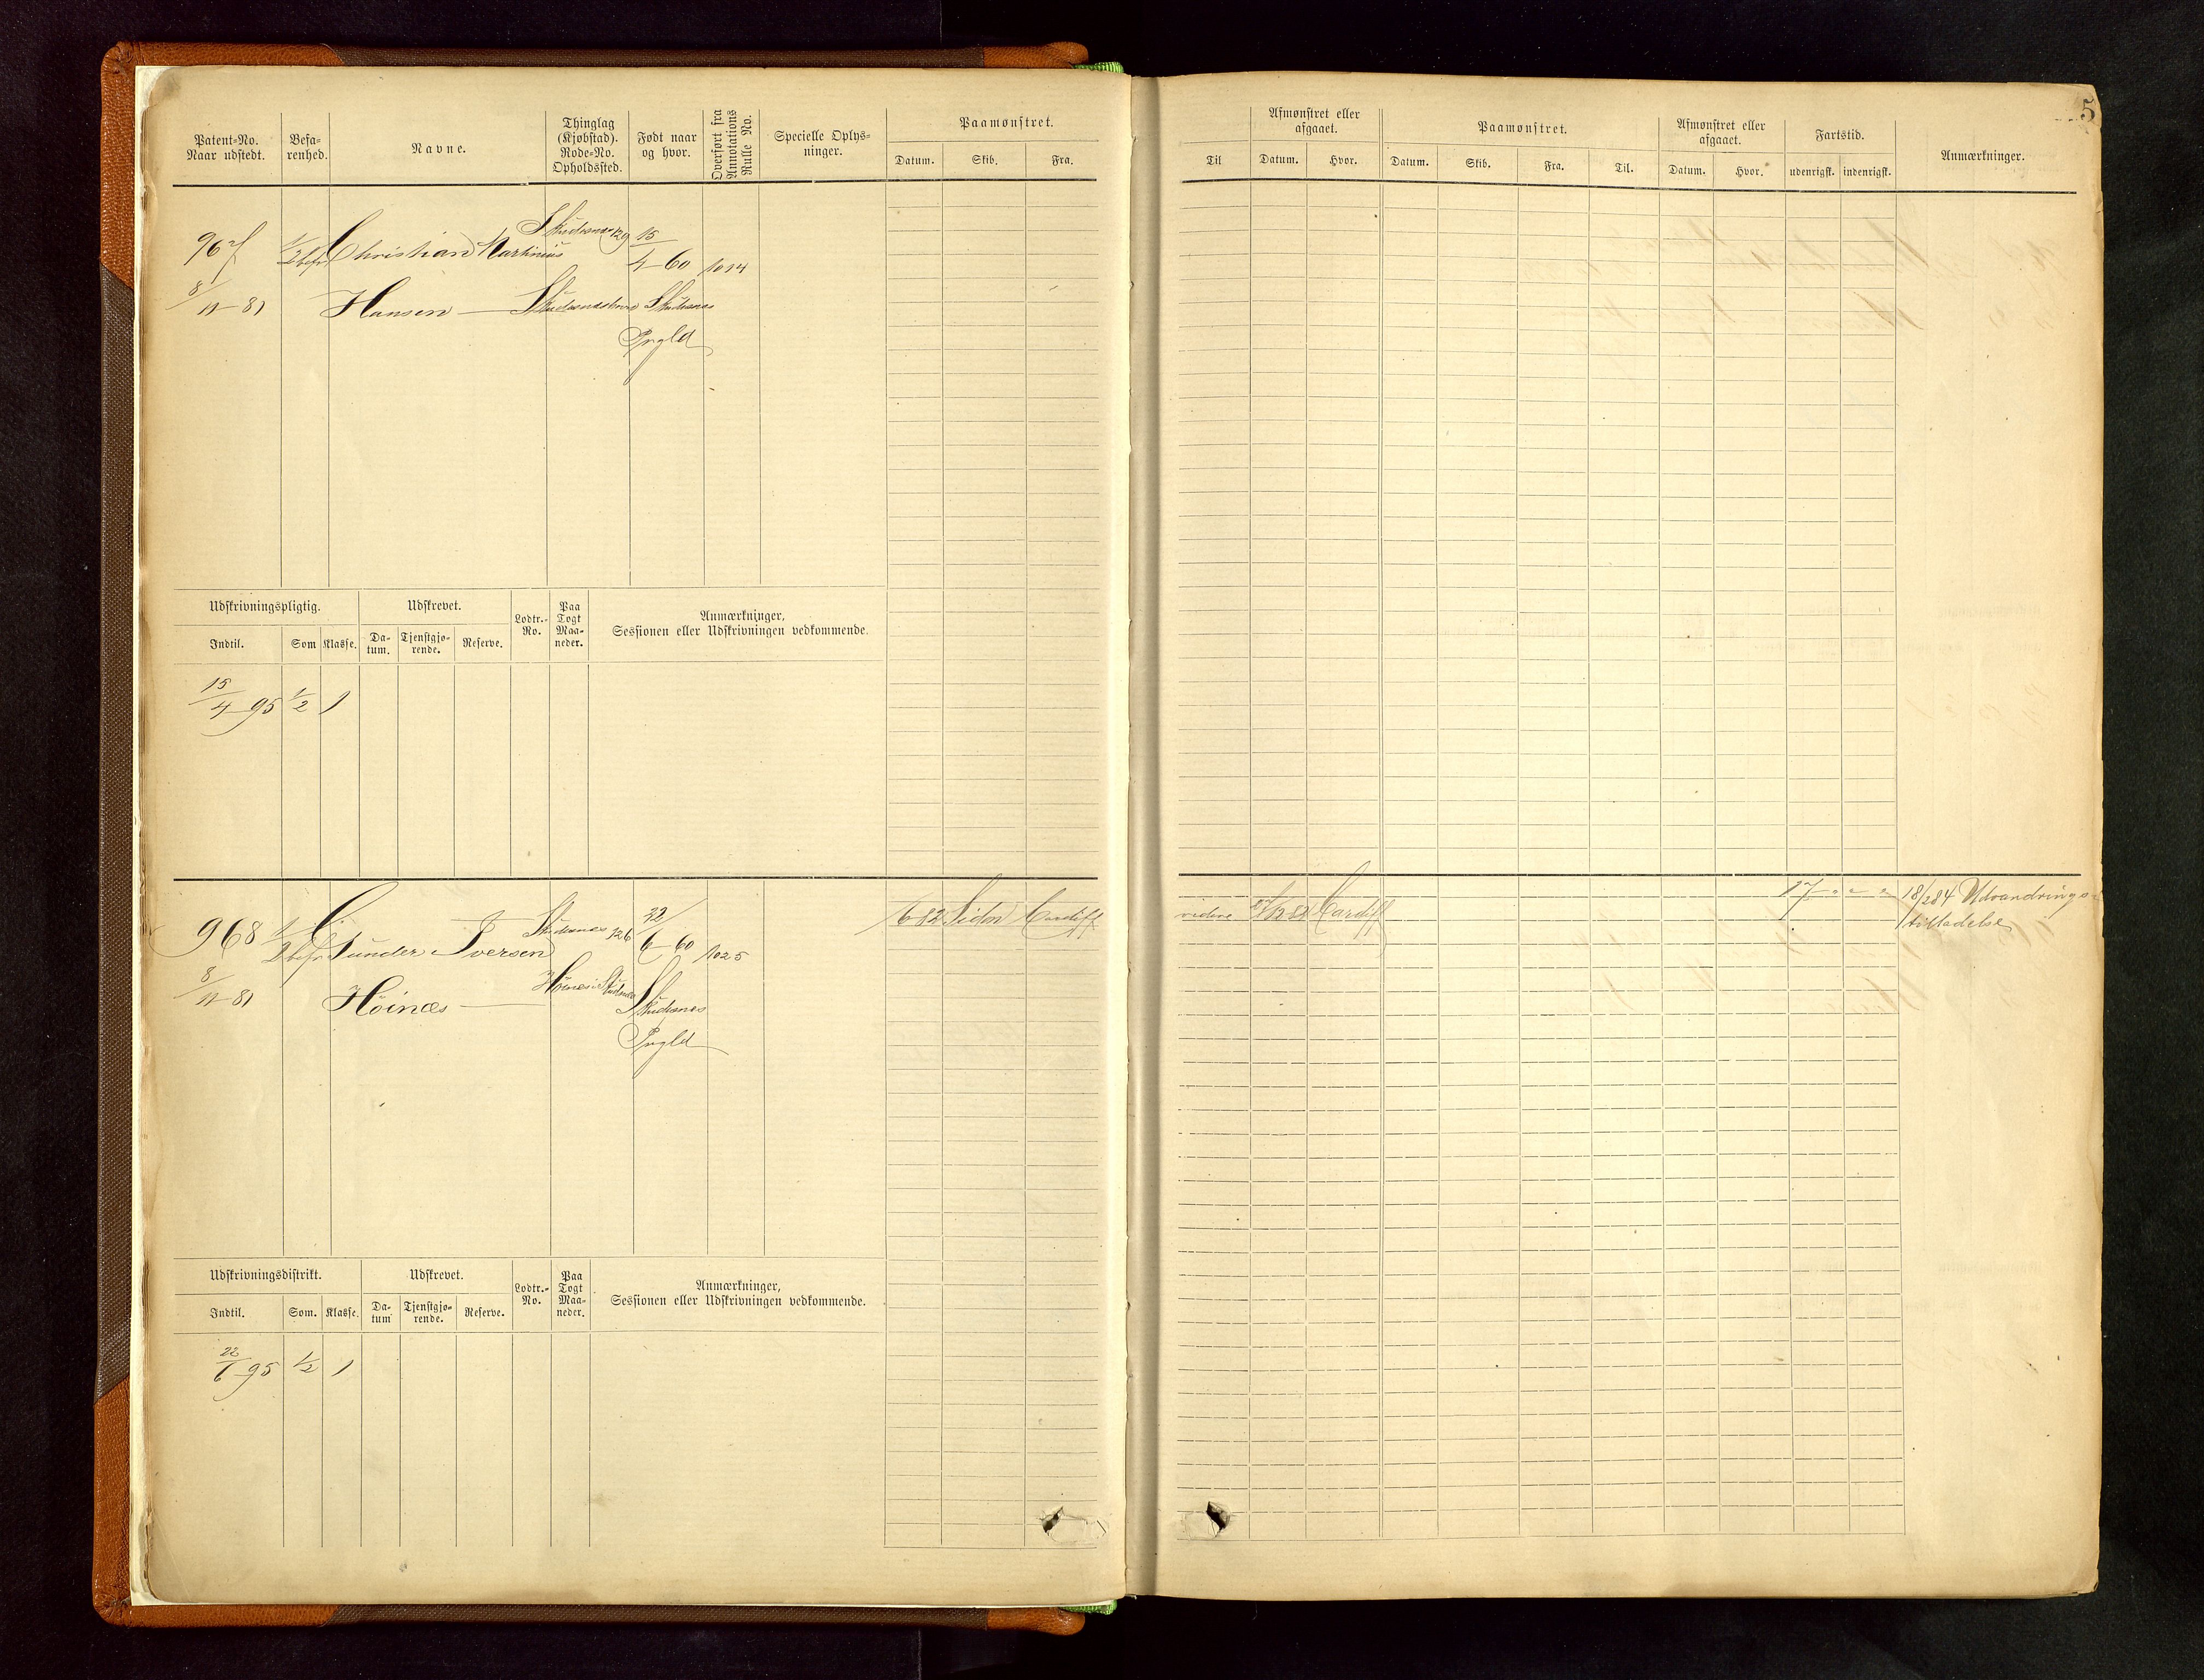 5
Patent-No.
Naar udstedt.
Befa-
renhed.
Navne.
Thinglag
(Kjøbstad).
Rode-No.
Opholdssted.
Født naar
og hvor.
Overført fra
Annotations
Rulle No.
Specielle Oplys-
ninger.
Paamønstret.
Datum. Skib. Fra.
Til
Afmønstret eller
afgaaet.
Datum. Hvor.
Paamønstret.
Datum. Skib. Fra. Til.
Afmønstret eller
afgaaet.
Datum. Hvor.
Fartstid.
udenrigsk. indenrigsk.
Anmærkninger.
967 1/2 bef. Christian Martinius Skudesnæs 129 15/4-60 1014
8/11-81 Hansen Skudesnæshavn Skudesnæs
Prgld
Udskrivningspligtig.
Indtil. Som Klasse.
Udskrevet.
Da-
tum.
Tjenstgjø-
rende.
Reserve.
Lodtr.-
No.
Paa
Togt
Maa-
neder.
Anmærkninger,
Sessionen eller Udskrivningen vedkommende.
15/4-95 1/2 1
968 1/2 bef. Gunder Iversen Skudesnæs 126 22/6-60 1025
8/11-81 Høinæs Høinæs i Skudesnæs Skudesnæs
Prgld
82 Cardiff
videre 82 Cardiff
17 - - - 18/2 84 Udvandrings-
tilladelse
Udskrivningsdistrikt.
Indtil. Som. Klasse.
Udskrevet.
Da-
tum
Tjenstgjø-
rende.
Reserve.
Lodtr.-
No.
Paa
Togt
Maa-
neder.
Anmærkninger,
Sessionen eller Udskrivningen vedkommende.
22/6 95 1/2 1